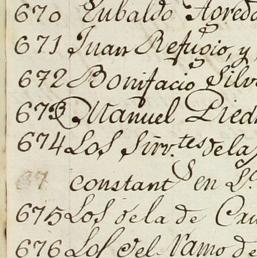 670 Eubaldo Agredo
671 Juan Refugio, y
672 Bonifacio Silv
673 Manuel Pied
674 Los Sirv.tes de la
constant.s en L.
675 Los de la de Ca
676 Los del Ramo de